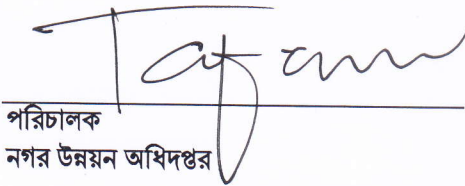 পরিচালক
নগর উন্নয়ন অধিদপ্তর